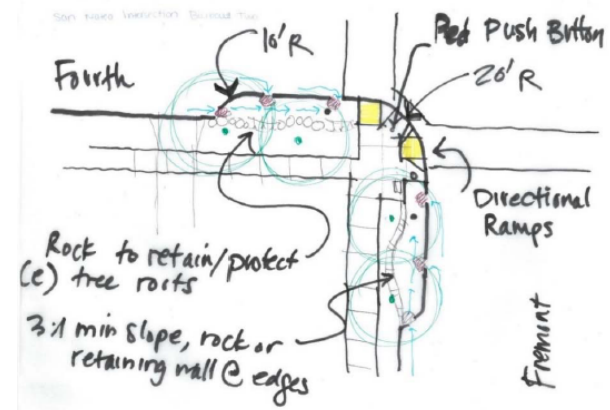 10' R
Ped Push Button
Fourth
20' R
Directional
Ramps
Rock to retain/protect
(e) tree roots
3:1 min slope, rock or
retaining wall @ edges
Fremont